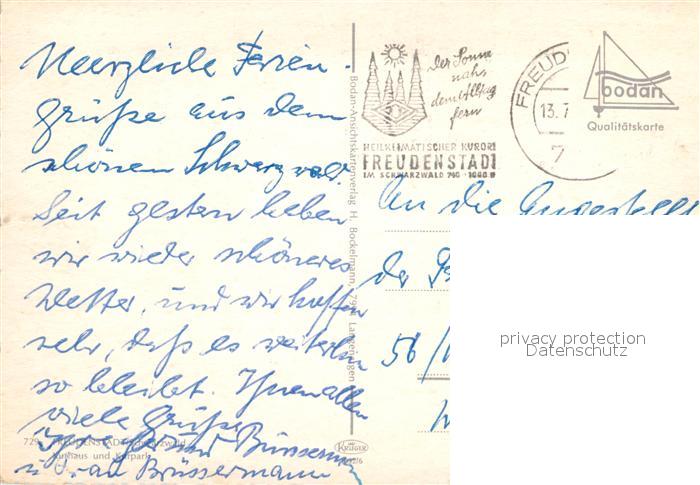 Herzliche Ferien-
grüße aus dem
schönen Schwarzwald.
Seit gestern haben
wir wieder schöneres
Wetter, und wir hoffen
sehr, daß es weiterhin
so bleibt. Ihnen allen
viele Grüße
Brüssermann
u. Frau Brüssermann
729
FREUDENSTADT/Schwarzwald
Kurhaus und Kurpark
Bodan-Ansichtskartenverlag H. Bockelmann, Langenargen
KRÜGER
der Sonne
nahe
dem Alltag
fern
HEILKLIMATISCHER KURORT
FREUDENSTADT
IM SCHWARZWALD 740-1000 m
FREUD
13.7
7
bodan
Qualitätskarte
An die
der
56/
privacy protection
Datenschutz